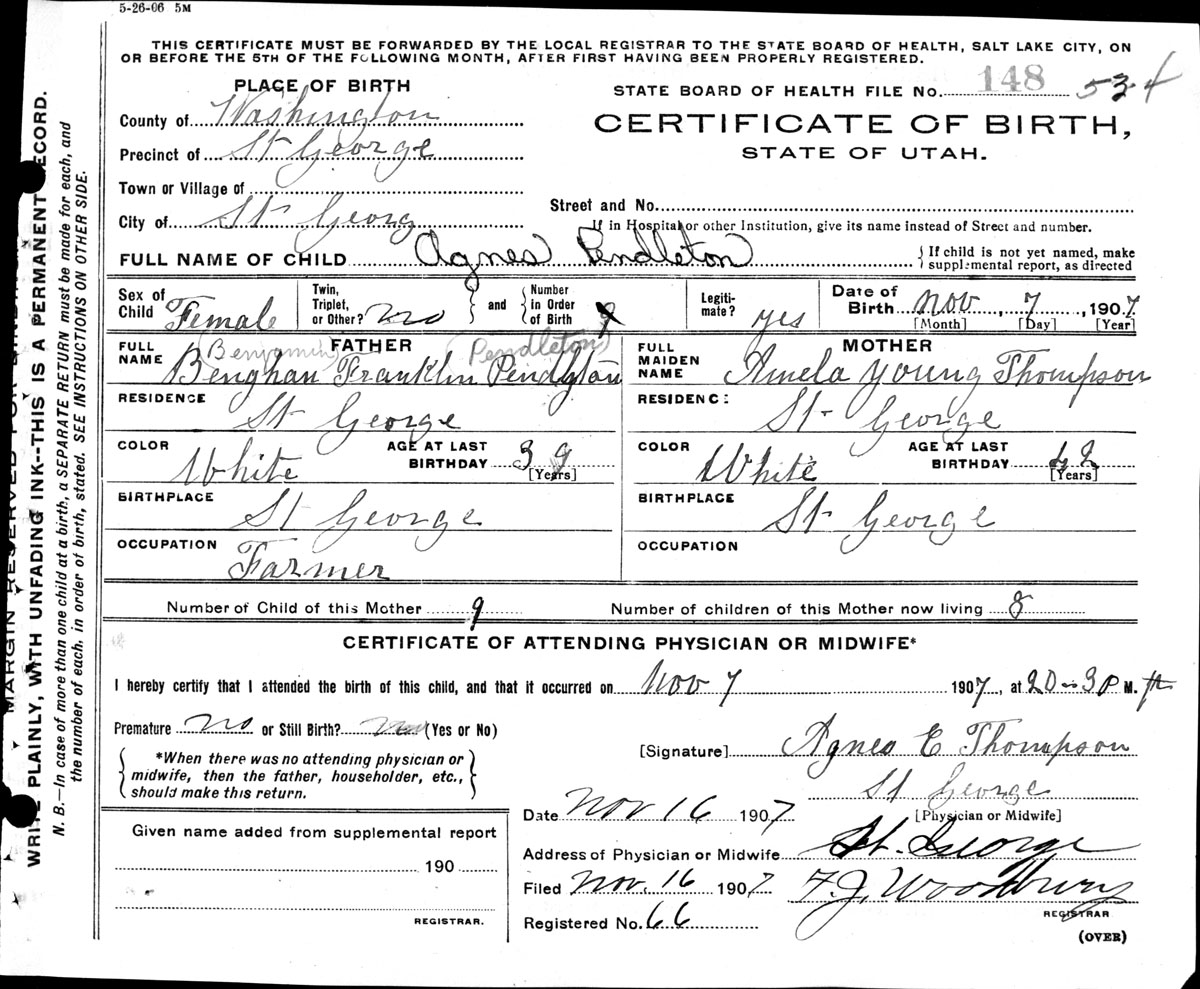 5-26-06 5M
THIS CERTIFICATE MUST BE FORWARDED BY THE LOCAL REGISTRAR TO THE STATE BOARD OF HEALTH, SALT LAKE CITY, ON
OR BEFORE THE 5TH OF THE FOLLOWING MONTH, AFTER FIRST HAVING BEEN PROPERLY REGISTERED.
PLACE OF BIRTH
STATE BOARD OF HEALTH FILE NO. 148 534
County of Washington
CERTIFICATE OF BIRTH,
Precinct of St George
STATE OF UTAH.
Town or Village of
Street and No.
City of St Georg
If in Hospital or other Institution, give its name instead of Street and number.
FULL NAME OF CHILD Agnes Pendleton
If child is not yet named, make
supplemental report, as directed
Sex of Child Female
Twin, Triplet, or Other? No
and
Number in Order of Birth 9
Legiti-mate? yes
Date of Birth Nov, 7, 1907
[Month] [Day] [Year]
FATHER
FULL NAME Benghan Franklin Pendleton
Benjamin (Pendleton)
RESIDENCE St George
COLOR White
AGE AT LAST BIRTHDAY 39
[Years]
BIRTHPLACE St George
OCCUPATION Farmer
MOTHER
FULL MAIDEN NAME Amela Young Thompson
RESIDENCE St George
COLOR White
AGE AT LAST BIRTHDAY 42
[Years]
BIRTHPLACE St George
OCCUPATION
Number of Child of this Mother 9 Number of children of this Mother now living 8
CERTIFICATE OF ATTENDING PHYSICIAN OR MIDWIFE*
I hereby certify that I attended the birth of this child, and that it occurred on Nov 7 1907, at P M.
Premature No or Still Birth? (Yes or No)
[Signature] Agnes E Thompson
*When there was no attending physician or
midwife, then the father, householder, etc.,
should make this return.
St George
[Physician or Midwife]
Date Nov 16 1907
Address of Physician or Midwife St. George
Filed Nov. 16 1907 F. J. Woodbury
REGISTRAR
Registered No. 66
(OVER)
Given name added from supplemental report
190
REGISTRAR.
MARGIN RESERVED FOR
WRITE PLAINLY, WITH UNFADING INK--THIS IS A PERMANENT RECORD.
N. B.—In case of more than one child at a birth, a SEPARATE RETURN must be made for each, and
the number of each, in order of birth, stated. SEE INSTRUCTIONS ON OTHER SIDE.